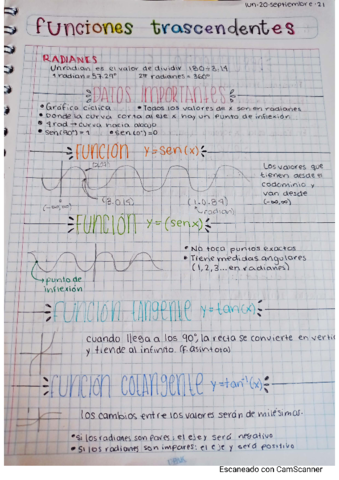 lun-20 septiembre-21
funciones trascendentes
RADIANES
Un radian es el valor de dividir 180÷3.14
1 radian = 57.29° 2π radianes = 360°
DATOS IMPORTANTES
• Gráfica cíclica • Todos los valores de x son en radianes
• Donde la curva corta al eje x hay un punto de inflexión
• 4rad → curva hacia abajo
• Sen(90°)=1 • Sen(0°)=0
FUNCIÓN y=sen(x)
Los valores que
tienen desde el
codominio y
van desde
(-∞,∞)
(-∞,∞) (3.015) (1.0.84)
radian
FUNCIÓN y=(senx)
• No toca puntos exactos
• Tiene medidas angulares
(1,2,3... en radianes)
punto de
inflexión
FUNCIÓN TANGENTE y=tan(x)
cuando llega a los 90°, la recta se convierte en verti
y tiende al infinito. (f. asintota)
FUNCIÓN COTANGENTE y=tan⁻¹(x)
los cambios entre los valores serán de milésimas.
• Si los radianes son pares: el eje y será negativo
• Si los radianes son impares: el eje y será positivo
Escaneado con CamScanner